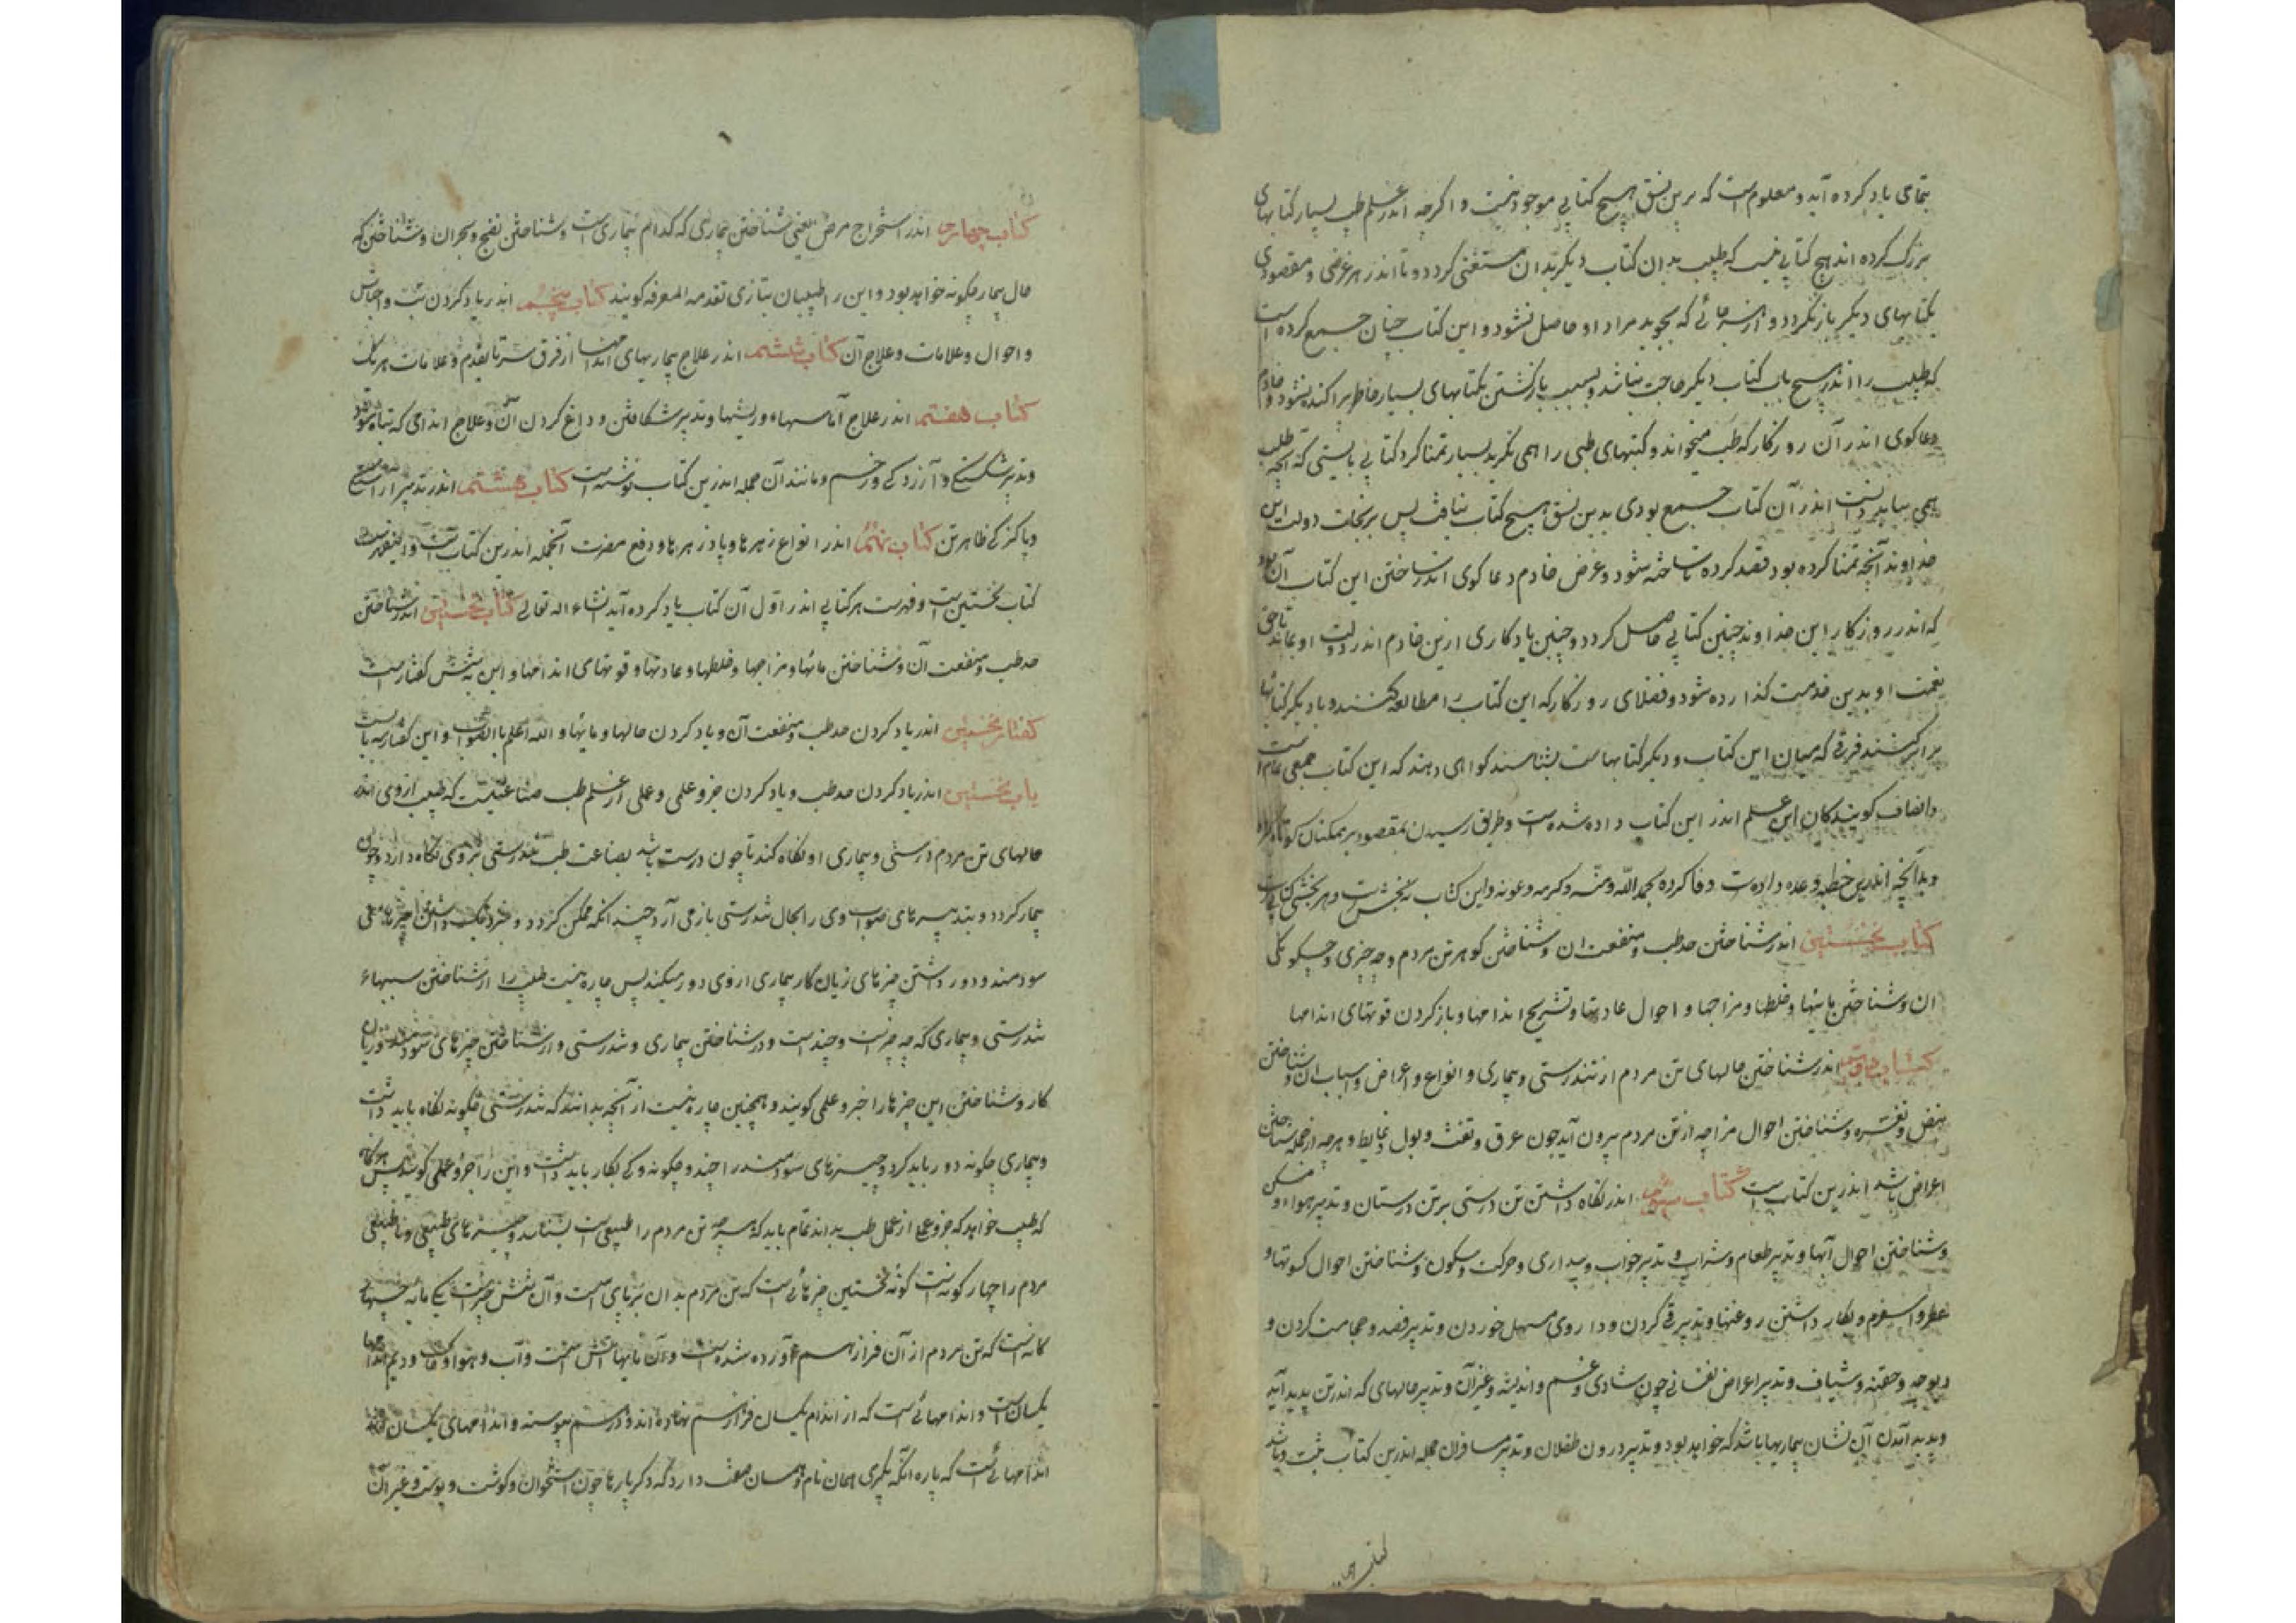 بتمامی یاد کرده آید و معلوم است که برین نسق هیچ کتابی موجود نیست و اگرچه اندر علم طب بسیار کتابهای
بزرگ کرده اند هیچ کتابی نیست که طبیب بدان کتاب دیگر بدان مستغنی کردد و تا اندر هر غرضی و مقصودی
بکتابهای دیگر بازنگردد و از هر جائی که بجوید مراد او حاصل نشود و این کتاب چنان جمع کرده است
که طبیب را اندر هیچ باب کتاب دیگر حاجت نباشد و بسبب بازگشتن بکتابهای بسیار خاطر پراکنده نشود و خادم
دعاکوی اندر آن روزکار که طب میخواند و کتبهای طبی را همی نکرید بسیار تمنا کرد کتابی بایستی که آنچه طبیب
همی بباید دانست اندر آن کتاب جمع بودی بدین نسق هیچ کتاب نیافت پس برنجات دولت این
خداوند آنچه تمنا کرده بود قصد کرده تا ساخته شود و غرض خادم دعا کوی اندر ساختن این کتاب آن بود
که اندر روزکار این خداوند چنین کتابی حاصل کردد و چنین یادکاری ازین خادم اندر دولت او بماند تا حق
نعمت او بدین خدمت کذارده شود و فضلای روزکار که این کتاب را مطالعه کنند و با دیکر کتابها
برابر کنند فرقی که میان این کتاب و دیکر کتابهاست بشناسند کواهی دهند که این کتاب جمعی تمام است
وانصاف کویندکان این علم اندر این کتاب داده شده است و طریق رسیدن بمقصود بر همکنان کوتاه
وبدآنچه اندرین خطبه وعده داده است وفا کرده بحمد الله ومنه وکرمه وعونه واین کتاب نه بخش است وهر بخشی کتابی است
کتاب نخستین اندر شناختن حد طب ومنفعت ان وشناختن کوهر تن مردم وچه چیزی وچکونکی
ان وشناختن مایتها وخلطها ومزاجها واحوال عادتها وتشریح اندامها وباز کردن قوتهای اندامها
کتاب دوم اندر شناختن حالهای تن مردم از تندرستی وبیماری وانواع واعراض واسباب ان وشناختن
نبض وتفسره وشناختن احوال هرآنچه از تن مردم بیرون آید چون عرق ونفث وبول وغایط وهرچه از جمله
اعراض باشد اندرین کتاب است کتاب سوم اندر نکاه داشتن تن درستی بر تن درستان وتدبیر هواء ومسکن
وشناختن احوال آبها وتدبیر طعام وشراب وتدبیر خواب وبیداری وحرکت وسکون وشناختن احوال کسوتها و
عطر واسپرغم وبکار داشتن روغنها وتدبیر قی کردن وداروی مسهل خوردن وتدبیر فصد وحجامت کردن و
دیوچه وحقنه وشیاف وتدبیر اعراض نفسانی چون شادی وغم واندیشه وغیرآن وتدبیر حالهای که اندر تن پدید آید
وپدید آمدن آن نشان بیماریها باشد که خواهد بود وتدبیر درون طفلان وتدبیر مسافران جمله اندرین کتاب
کتاب چهارم
کتاب چهارم اندر استخراج مرض یعنی شناختن بیماری که کدام بیماری است وشناختن نضج وبحران وشناختن که
حال بیمار چکونه خواهد بود واین را طبیبان بتازی تقدمه المعرفه کویند کتاب پنجم اندر یاد کردن تب واجناس
واحوال وعلامات وعلاج آن کتاب ششم اندر علاج بیماریهای اندامها از فرق سر تا بقدم وعلامات هر یک
کتاب هفتم اندر علاج آماسهاء وریشها وتدبیر شکافتن وداغ کردن آن وعلاج اندامی که تباه شود
وتدبیر شکستکی وآزردکی وزخم ومانند آن جمله اندرین کتاب نوشته است کتاب هشتم اندر تدبیر آراستکی
وپاکیزکی ظاهر تن کتاب نهم اندر انواع زهرها وپادزهرها ودفع مضرت آنجمله اندرین کتاب است
کتاب نخستین است وفهرست هر کتابی اندر اول آن کتاب یاد کرده آید انشاء الله تعالی کتاب نخستین اندر شناختن
حد طب ومنفعت آن وشناختن مائها ومزاجها وخلطها وعادتها وقوتهای اندامها واین شش کفتار است
کفتار نخستین اندر یاد کردن حد طب ومنفعت آن ویاد کردن حالها ومایها والله اعلم بالصواب واین کفتار سه باب است
باب نخستین اندر یاد کردن حد طب ویاد کردن جزو علمی وعملی از علم طب صناعتیست که طبیب از وی اندر
حالهای تن مردم درستی وبیماری او نکاه کند تا چون درست باشد بصناعت طب تندرستی بر وی نکاه دارد وچون
بیمار کردد وبتدبیرهای صواب وی را بحال تندرستی باز می آرد چندانکه ممکن کردد
سودمند ودور داشتن چیزهای زیان کار بیماری از وی دور میکند پس چاره نیست طبیب را از شناختن سببهاء
تندرستی وبیماری که چه چیز است وچند است ودر شناختن بیماری وتندرستی واز شناختن چیزهای سودمند وزیان
کار وشناختن این چیزها را جزو علمی کویند وهمچنین چاره نیست از آنچه بدانند که تندرستی چکونه نکاه باید داشت
وبیماری چکونه دور باید کرد وچیزهای سودمند را چند وچکونه وکی بکار باید داشت واین را جزو عملی کویند پس هرکاه
که طبیب خواهد که جزو علم از عمل طب بداند تمام باید که هرچه تن مردم را طبیعی است بشناسد وچیزهای طبیعی ونا طبیعی
مردم را چهار کونه است کونه نخستین چیزهائی است که تن مردم بدان بر پای است وآن شش چیز است یکی مایه
کانه است که تن مردم از آن فراز هم آورده شده است وآن مایها آتش است وآب وهوا وخاک ودیم اندامها
یکسان است واندامهائی است که از اندام یکسان فراز هم نهاده اند ودرهم پیوسته واندامهای یکسان
اندامهائی است که پاره آنکه بکیری همان نام وهمان صفت دارد که دکر پارها چون استخوان وکوشت وپوست وغیر آن